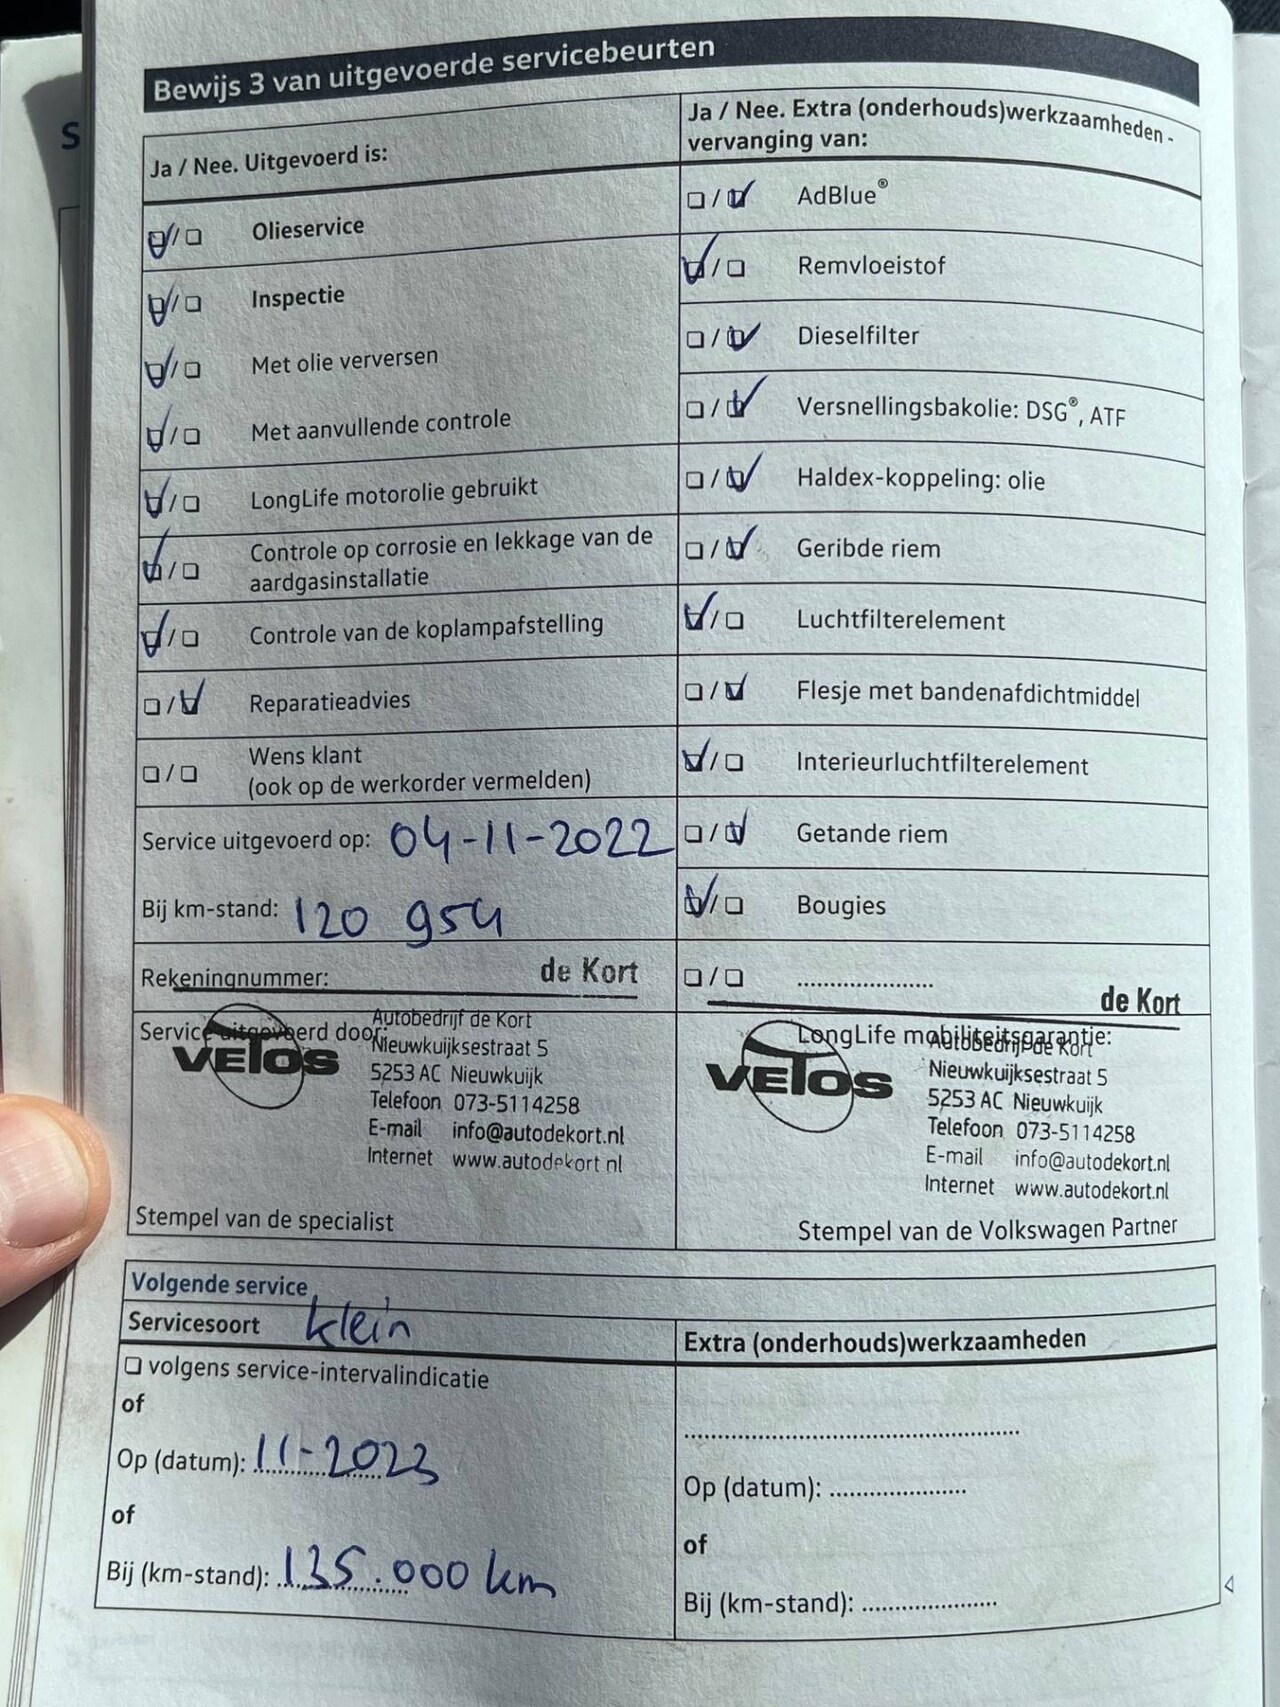 S
Bewijs 3 van uitgevoerde servicebeurten
Ja / Nee. Uitgevoerd is:
☑/☐ Olieservice
☑/☐ Inspectie
☑/☐ Met olie verversen
☑/☐ Met aanvullende controle
☑/☐ LongLife motorolie gebruikt
☑/☐ Controle op corrosie en lekkage van de
aardgasinstallatie
☑/☐ Controle van de koplampafstelling
☐/☑ Reparatieadvies
☐/☐ Wens klant
(ook op de werkorder vermelden)
Service uitgevoerd op: 04-11-2022
Bij km-stand: 120 954
Rekeningnummer:
de Kort
Service uitgevoerd door:
VETOS
Autobedrijf de Kort
Nieuwkuijksestraat 5
5253 AC Nieuwkuijk
Telefoon 073-5114258
E-mail info@autodekort.nl
Internet www.autodekort.nl
Stempel van de specialist
Ja / Nee. Extra (onderhouds)werkzaamheden -
vervanging van:
☐/☑ AdBlue®
☑/☐ Remvloeistof
☐/☑ Dieselfilter
☐/☑ Versnellingsbakolie: DSG®, ATF
☐/☑ Haldex-koppeling: olie
☐/☑ Geribde riem
☑/☐ Luchtfilterelement
☐/☑ Flesje met bandenafdichtmiddel
☑/☐ Interieurluchtfilterelement
☐/☑ Getande riem
☑/☐ Bougies
☐/☐ ......................
de Kort
LongLife mobiliteitsgarantie:
VETOS
Autobedrijf de Kort
Nieuwkuijksestraat 5
5253 AC Nieuwkuijk
Telefoon 073-5114258
E-mail info@autodekort.nl
Internet www.autodekort.nl
Stempel van de Volkswagen Partner
Volgende service
Servicesoort klein
☐ volgens service-intervalindicatie
of
Op (datum): 11-2023
of
Bij (km-stand): 135.000 km
Extra (onderhouds)werkzaamheden
......................................................
Op (datum): ......................
of
Bij (km-stand): ......................